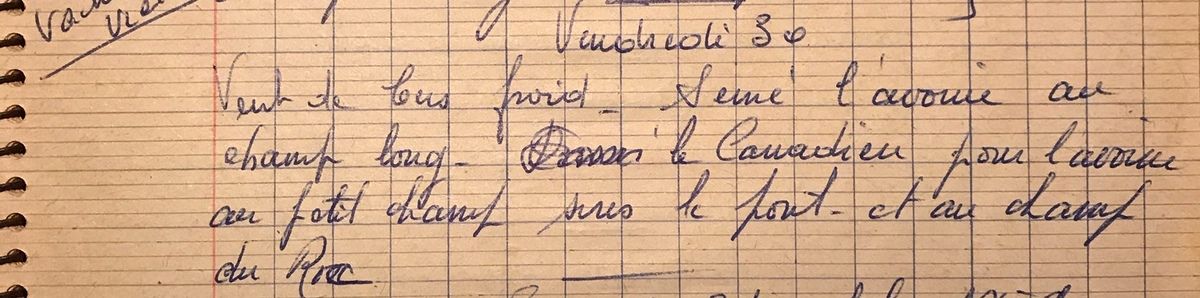 Vendredi 30
Vent de bas froid. Semé l'avoine au
champ long. le Canadien pour l'avoine
au petit champ sures le pont. et au champ
du Roc